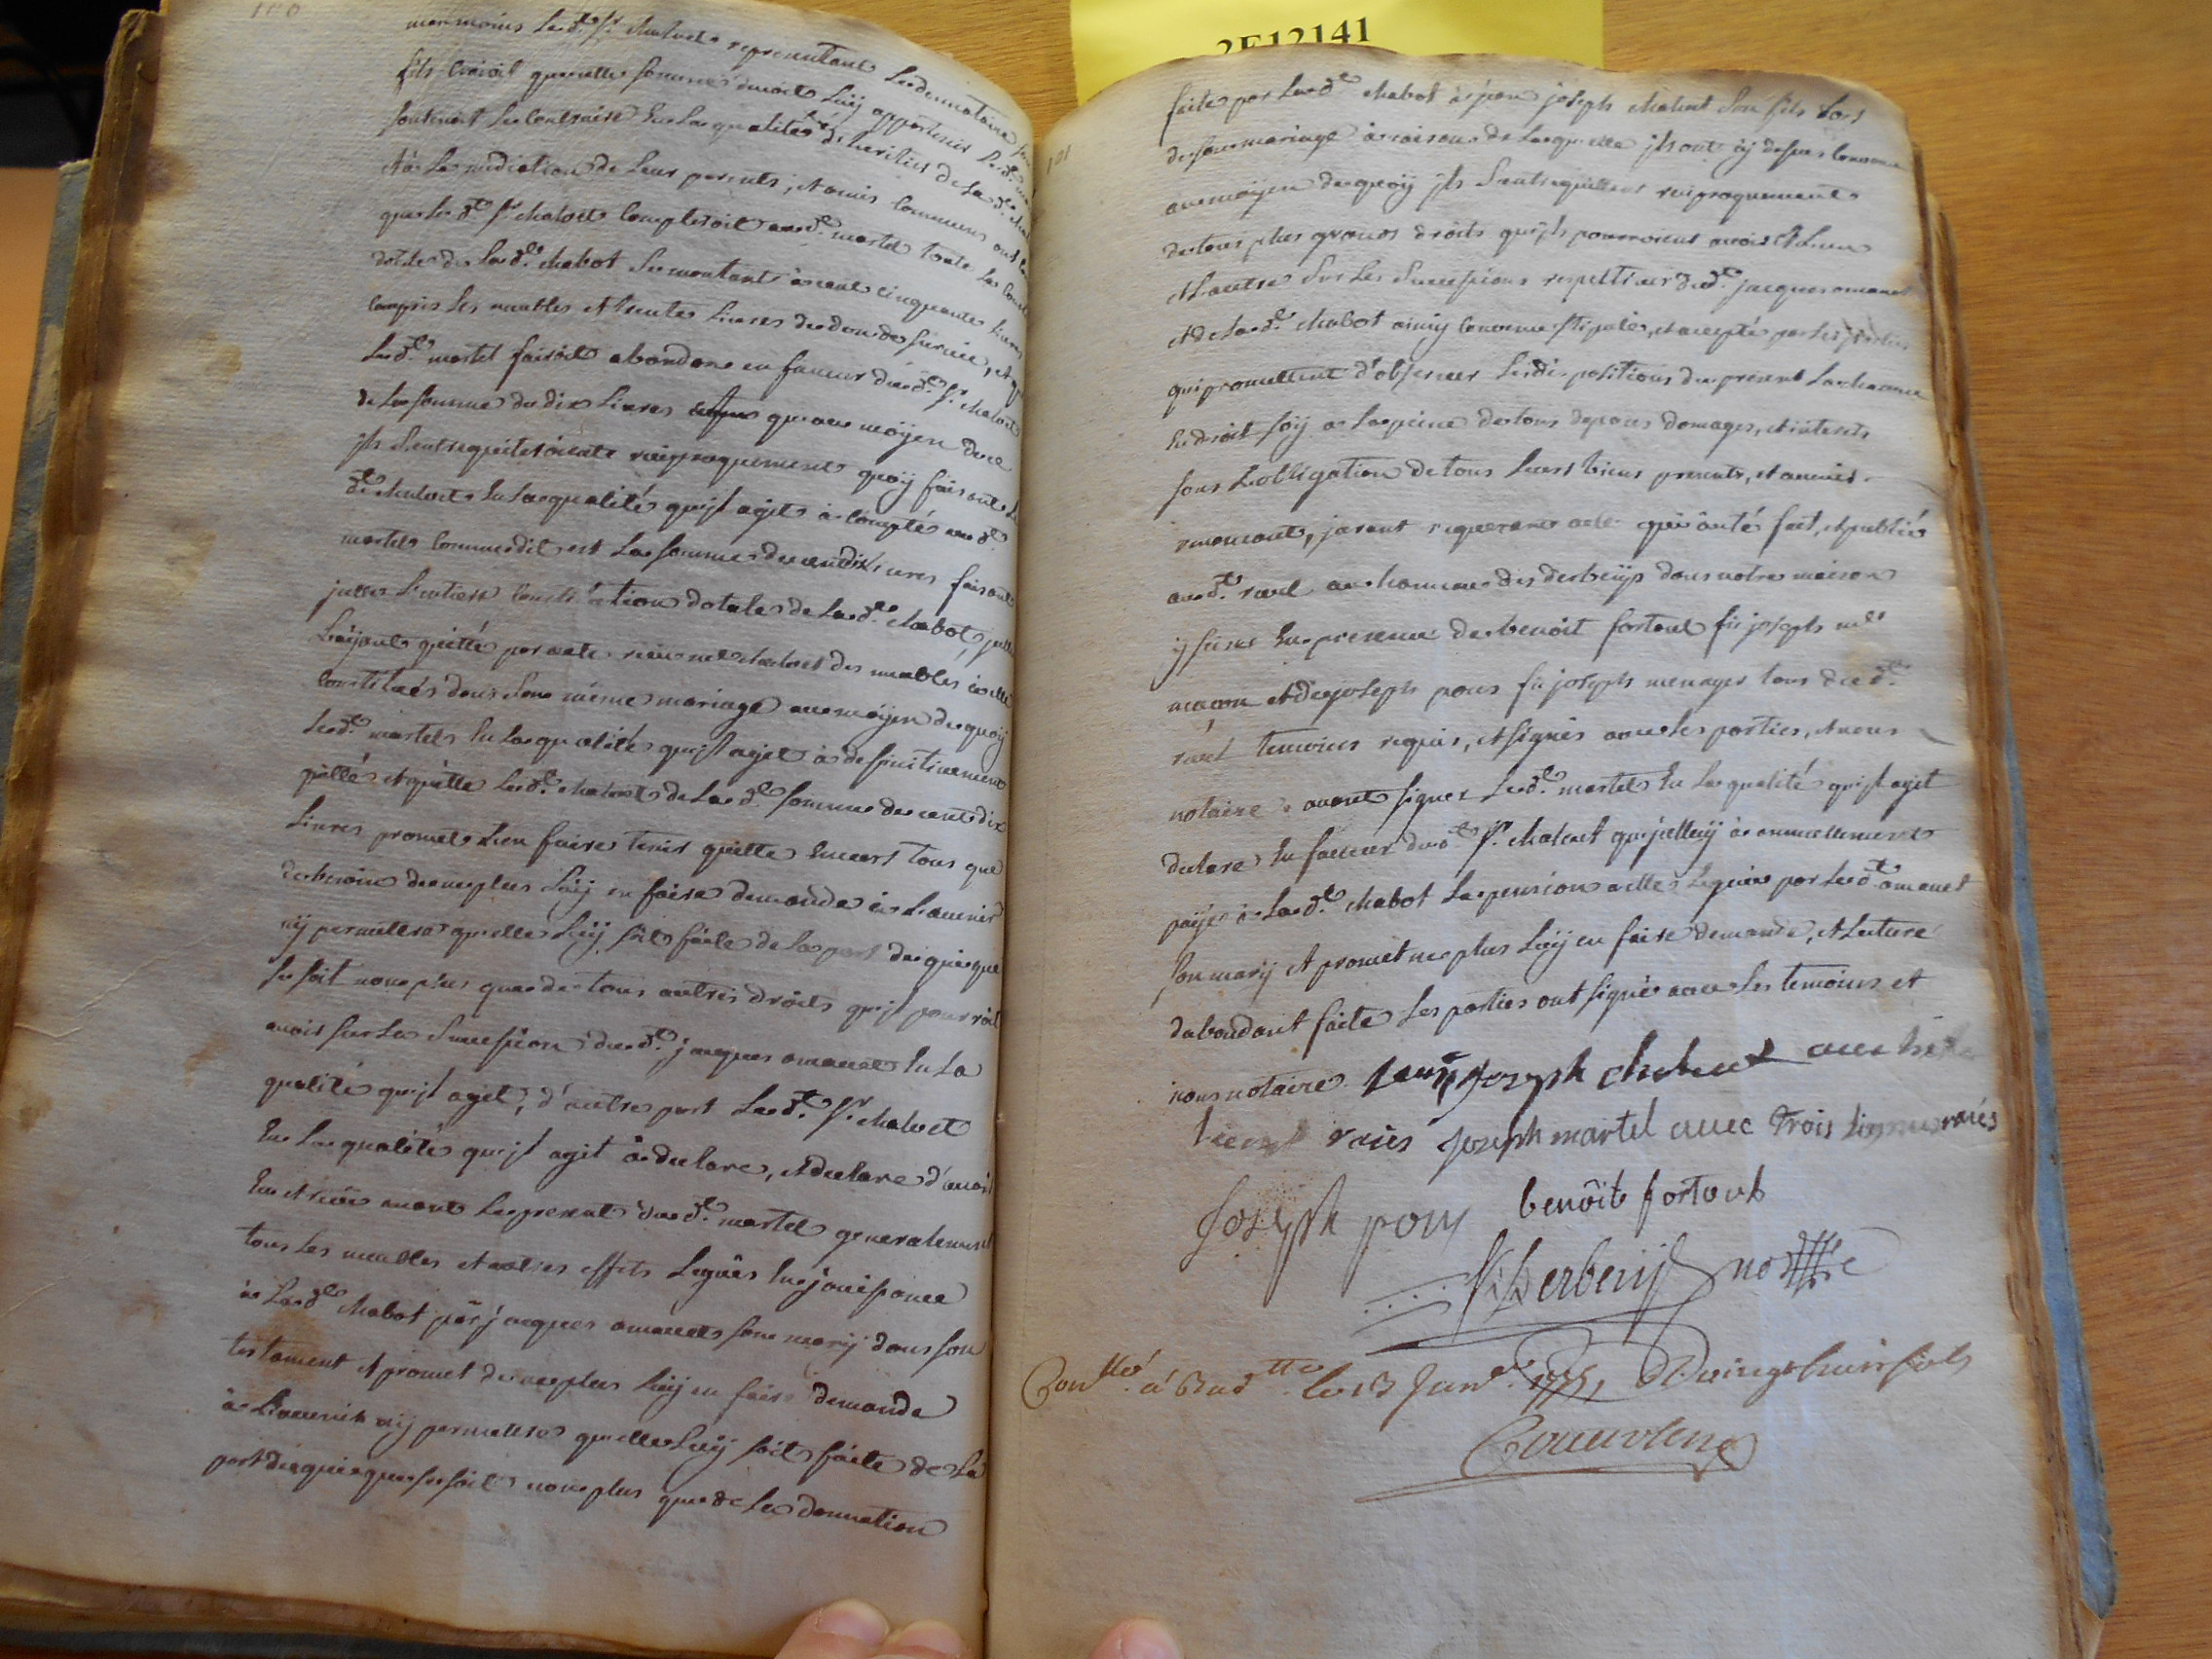 100
neanmoins led.t Sr chaluet representant led. donnataire son
fils croioit que cette somme devoit luy appartenir led.
soutenoit le contraire en la qualité d'heritier de lad.e
et a la mediation de leurs parents, et amis communs ont
que led.t Sr chaluet compteroit aud.t martel toute la
dotale de lad.e chabot se montant a cent cinquante livres
compris les meubles et trente livres de don de survie, et que
led.t martel fairoit abandon en faveur dud.t Sr chaluet
de la somme de dix livres que au moyen de ce
jls s'entrequiteroient reciproquement quoy faisant le
d.t chaluet en la qualité qu'jl agit a compté aud.t
martel comme dit est la somme de cent dix livres faisant
l'entiere constitution dotale de lad.e chabot,
l'ayant quitté par acte des meubles a elle
constitués dans son même mariage au moyen de quoy
led.t martel en la qualité qu'jl agit a definitivement
quitté et quitte led.t chaluet de lad.e somme de cent dix
livres promet l'en faire tenir quitte envers tous que
de besoin de ne plus luy en faire demande a l'avenir
ny permettre qu'elle luy soit faite de la part de qui que
se soit non plus que de tous autres droits qu'jl pourroit
avoir sur la succession dud.t jacques amauet en la
qualité qu'jl agit, d'autre part led.t Sr chaluet
en la qualité qu'jl agit a declaré, et declare d'avoir
eu et receu avant le present dud.t martel generalement
tous les meubles et autres effets legués en jouissance
a lad.e chabot par jacques amauet son mary dans son
testament et promet de ne plus luy en faire demande
a l'avenir ny permettre qu'elle luy soit faite de la
part de qui que se soit non plus que de la donnation
2E12141
101
faite par lad.e chabot a joseph chaluet son fils lors
de son mariage a raison de laquelle jls ont cy dessus convenu
au moyen de quoy jls s'entrequittent reciproquement
de tous plus grands droits qu'jls pourroient avoir et l'un
et l'autre sur les successions respectives dud.t jacques amauet
et de lad.e chabot ainsy convenu stipulé, et accepté par les parties
qui promettent d'observer les dispositions du present chacune
en droit soy a la peine de tous depens domages, et interets
sous l'obligation de tous leurs biens presents, et avenir
renoncant, jurant requerant acte qui a été fait, et publié
aud.t revel au hameau des derbeys dans notre maison
en presence de benoit fortoul fu joseph m.e
macon et de joseph pons fu joseph menager tous dud.t
revel temoins requis, et signés avec les parties, et nous
notaire avant signer led.t martel en la qualité qu'jl agit
declare en faveur dud.t Sr chaluet qu'jl luy a annuellement
payé a lad.e chabot la pension a elle leguée par led.t amauet
son mary et promet ne plus luy en faire demande, et lecture
dabondant faite les parties ont signé avec les temoins et
nous notaire. joseph chaluet avec
raiés joseph martel avec trois lignes raiés
Joseph pons benoît fortoul
Derbeÿs no.re
Con.llé a le 13 Janv.r Vingt huit sols